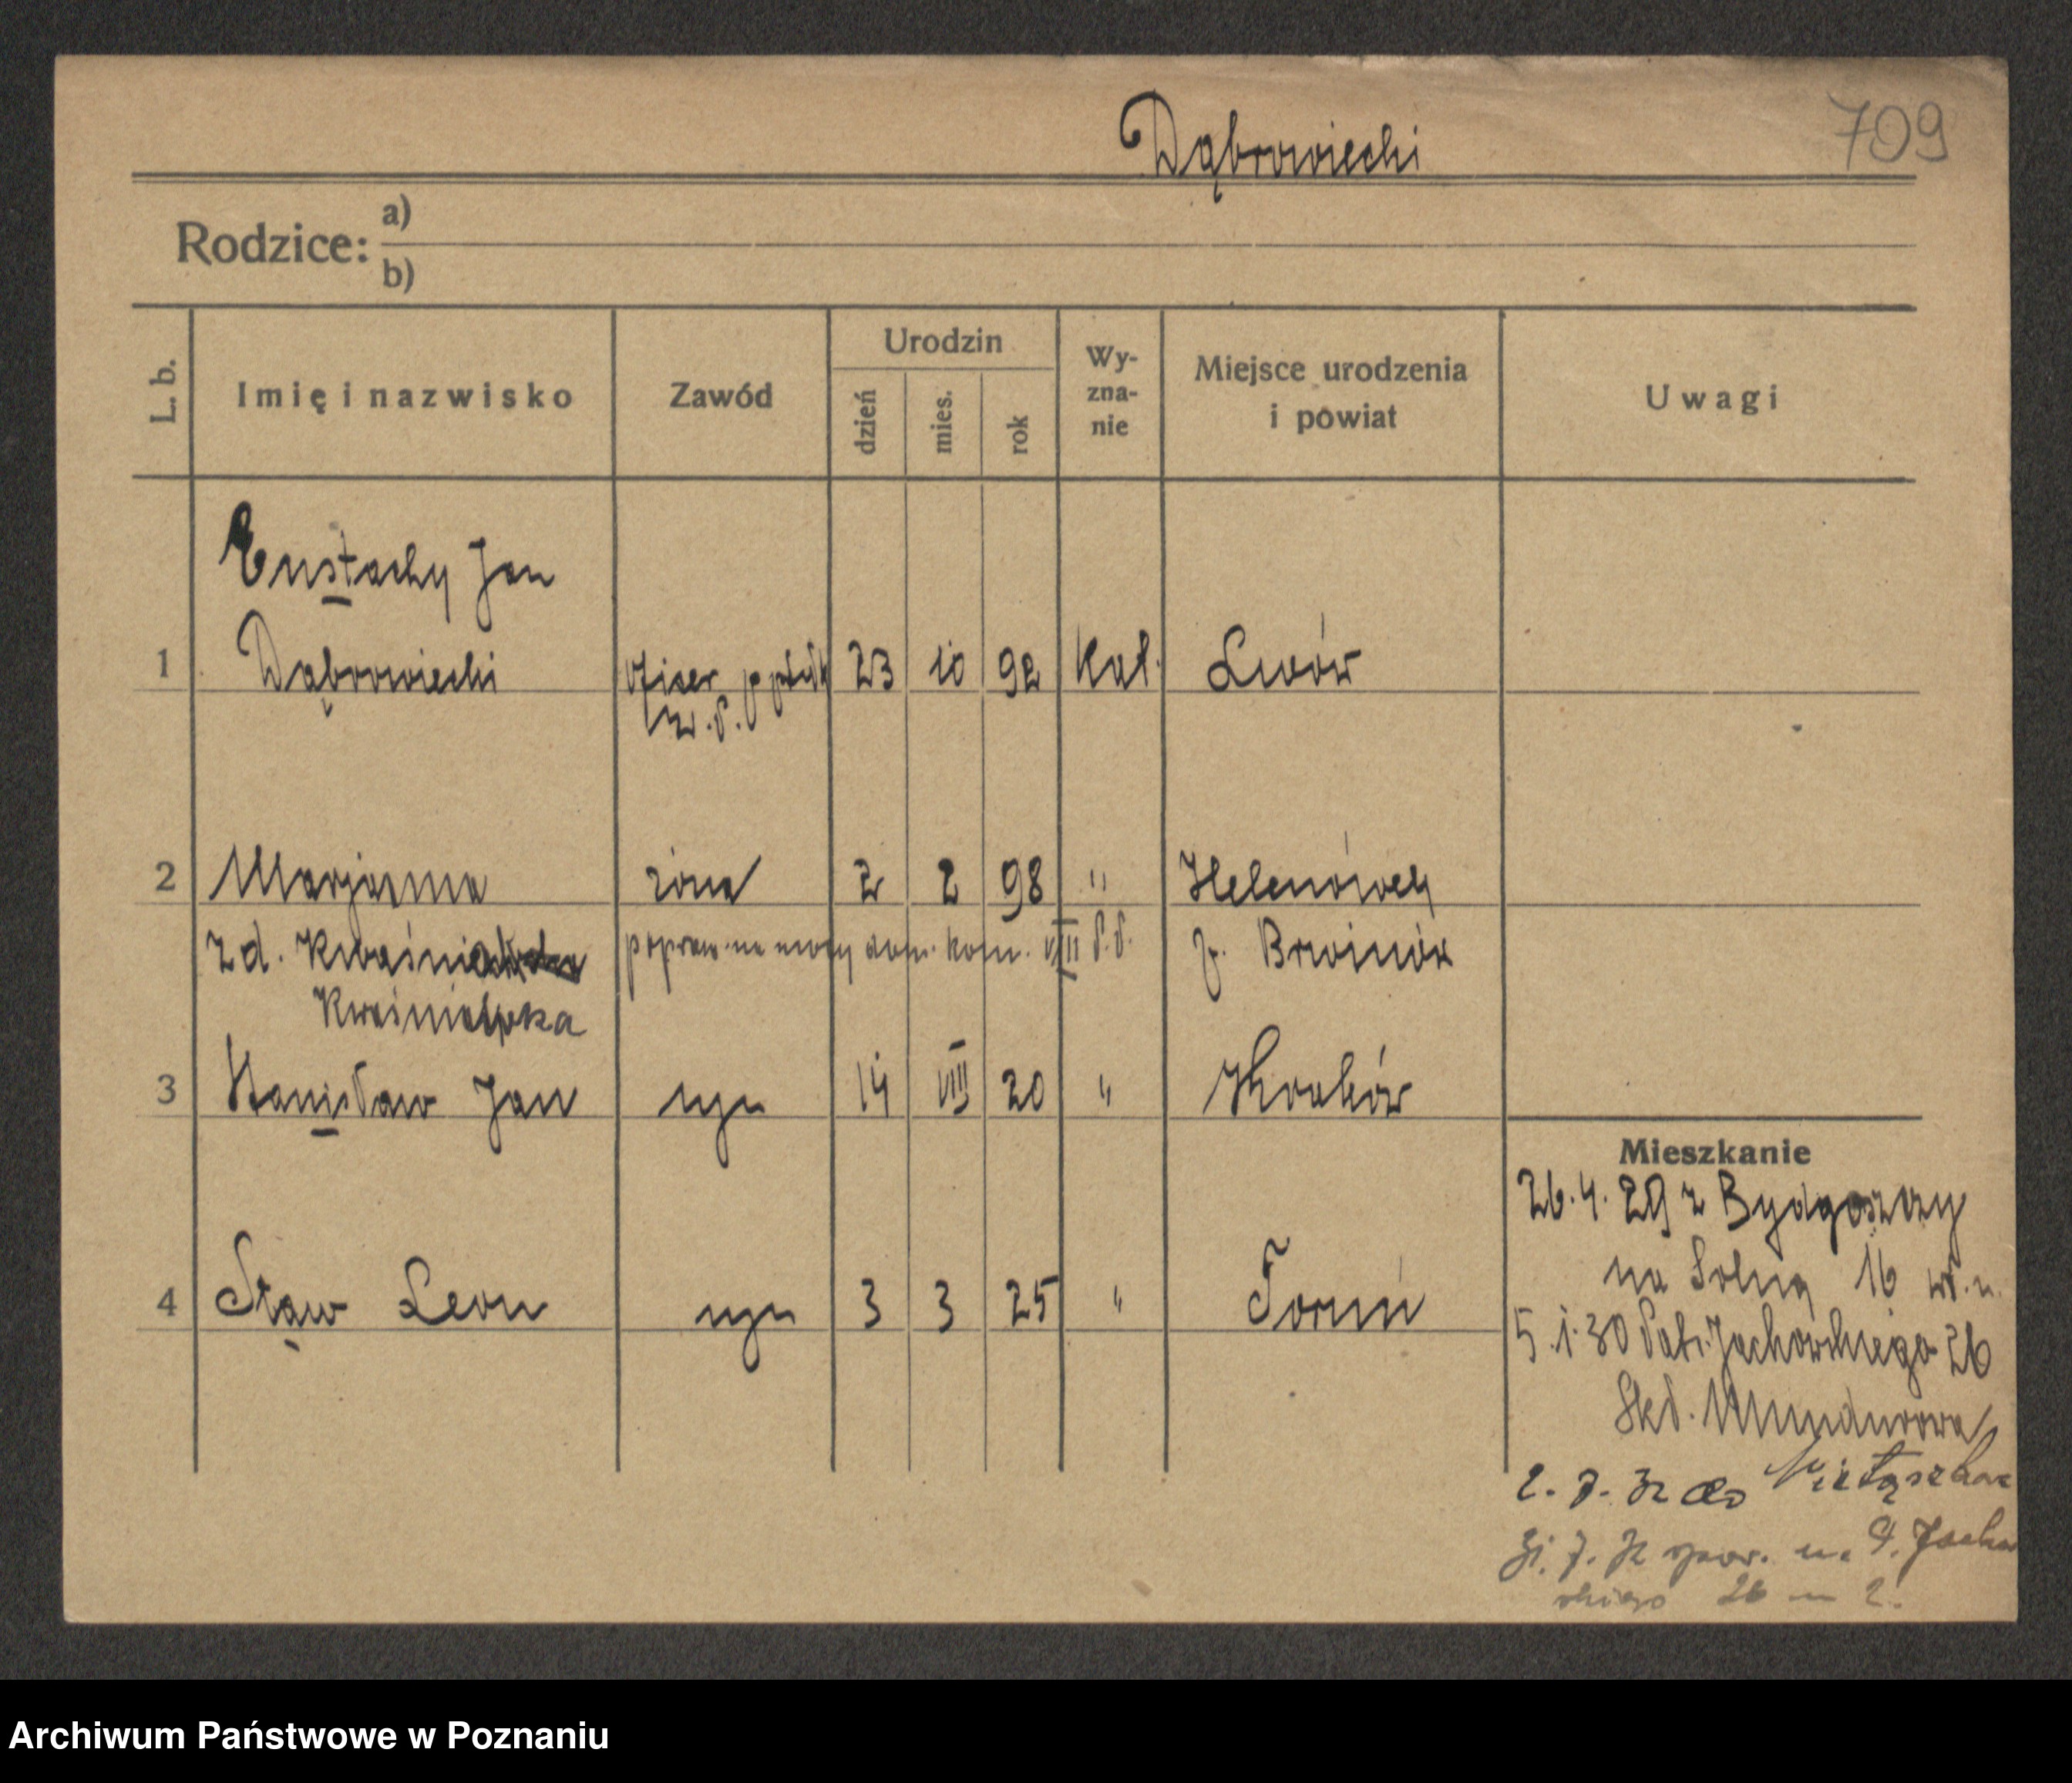 709
Dąbrowiecki
Rodzice: a)
b)
L. b. Imię i nazwisko Zawód Urodzin dzień mies. rok Wy-zna-nie Miejsce urodzenia i powiat Uwagi
Eustachy Jan
1 Dąbrowiecki oficer ppułk 23 10 92 kat. Lwów
w. p.
2 Marjanna żona 2 2 98 " Helenówek
zd. popraw. na mocy dom. kom. VIII P.P. p. Brwinów
3 Stanisław Jan syn 14 VIII 20 " Kraków
Mieszkanie
26.4.29 z Bydgoszczy
na Solną 16
4 Sław Leon syn 3 3 25 " Toruń
5.1.30 Jachowskiego 26
Skł. Mundurowa
2. 7. 32 do
31. 7. 32 n.
26 m 2.
Archiwum Państwowe w Poznaniu